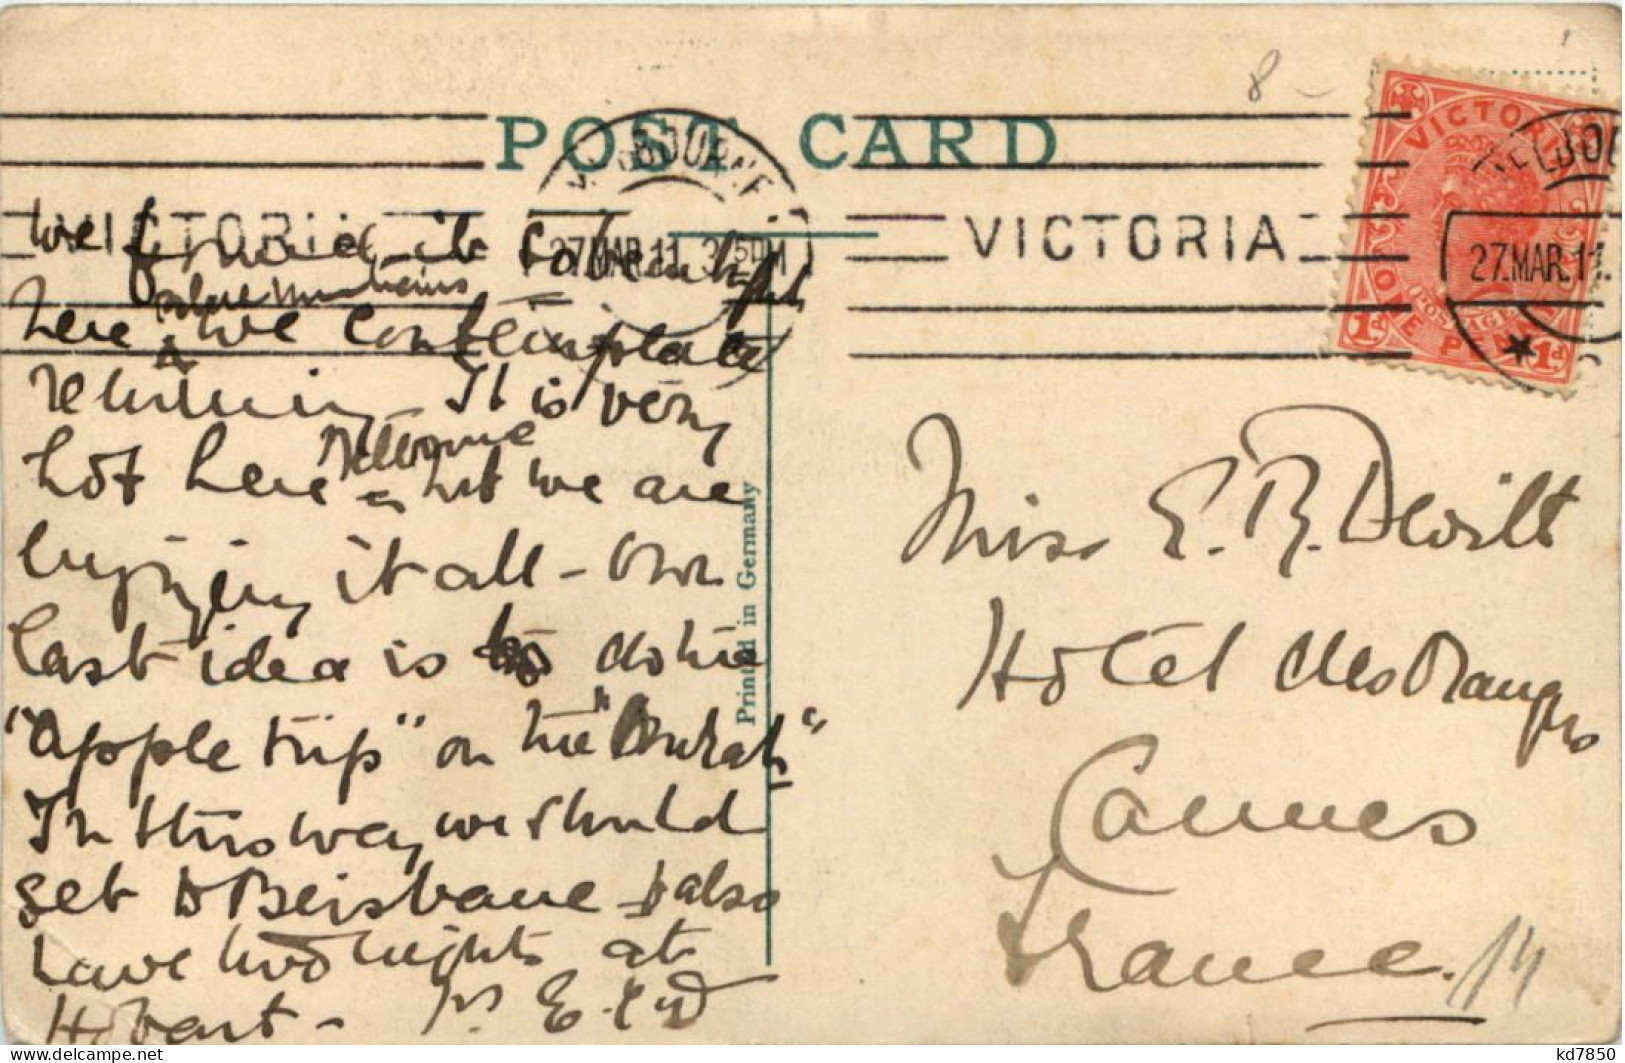 POST CARD
MELBOURNE
27.MAR.11 3.15PM
VICTORIA
VICTORIA
MELBOU
27.MAR.11.
VICTORIA
POSTAGE
ONE PENNY
1d 1d
8
We found it so
here we contemplate
returning. It is very
Melbourne
hot here but we are
enjoying it all - Our
last idea is to do the
"apple trip" on the
In this way we should
get to Brisbane & also
have two nights at
Hobart -
Printed in Germany
Miss E. R. Dewilt
Hotel des Oranges
Cannes
France.
14
kd7850